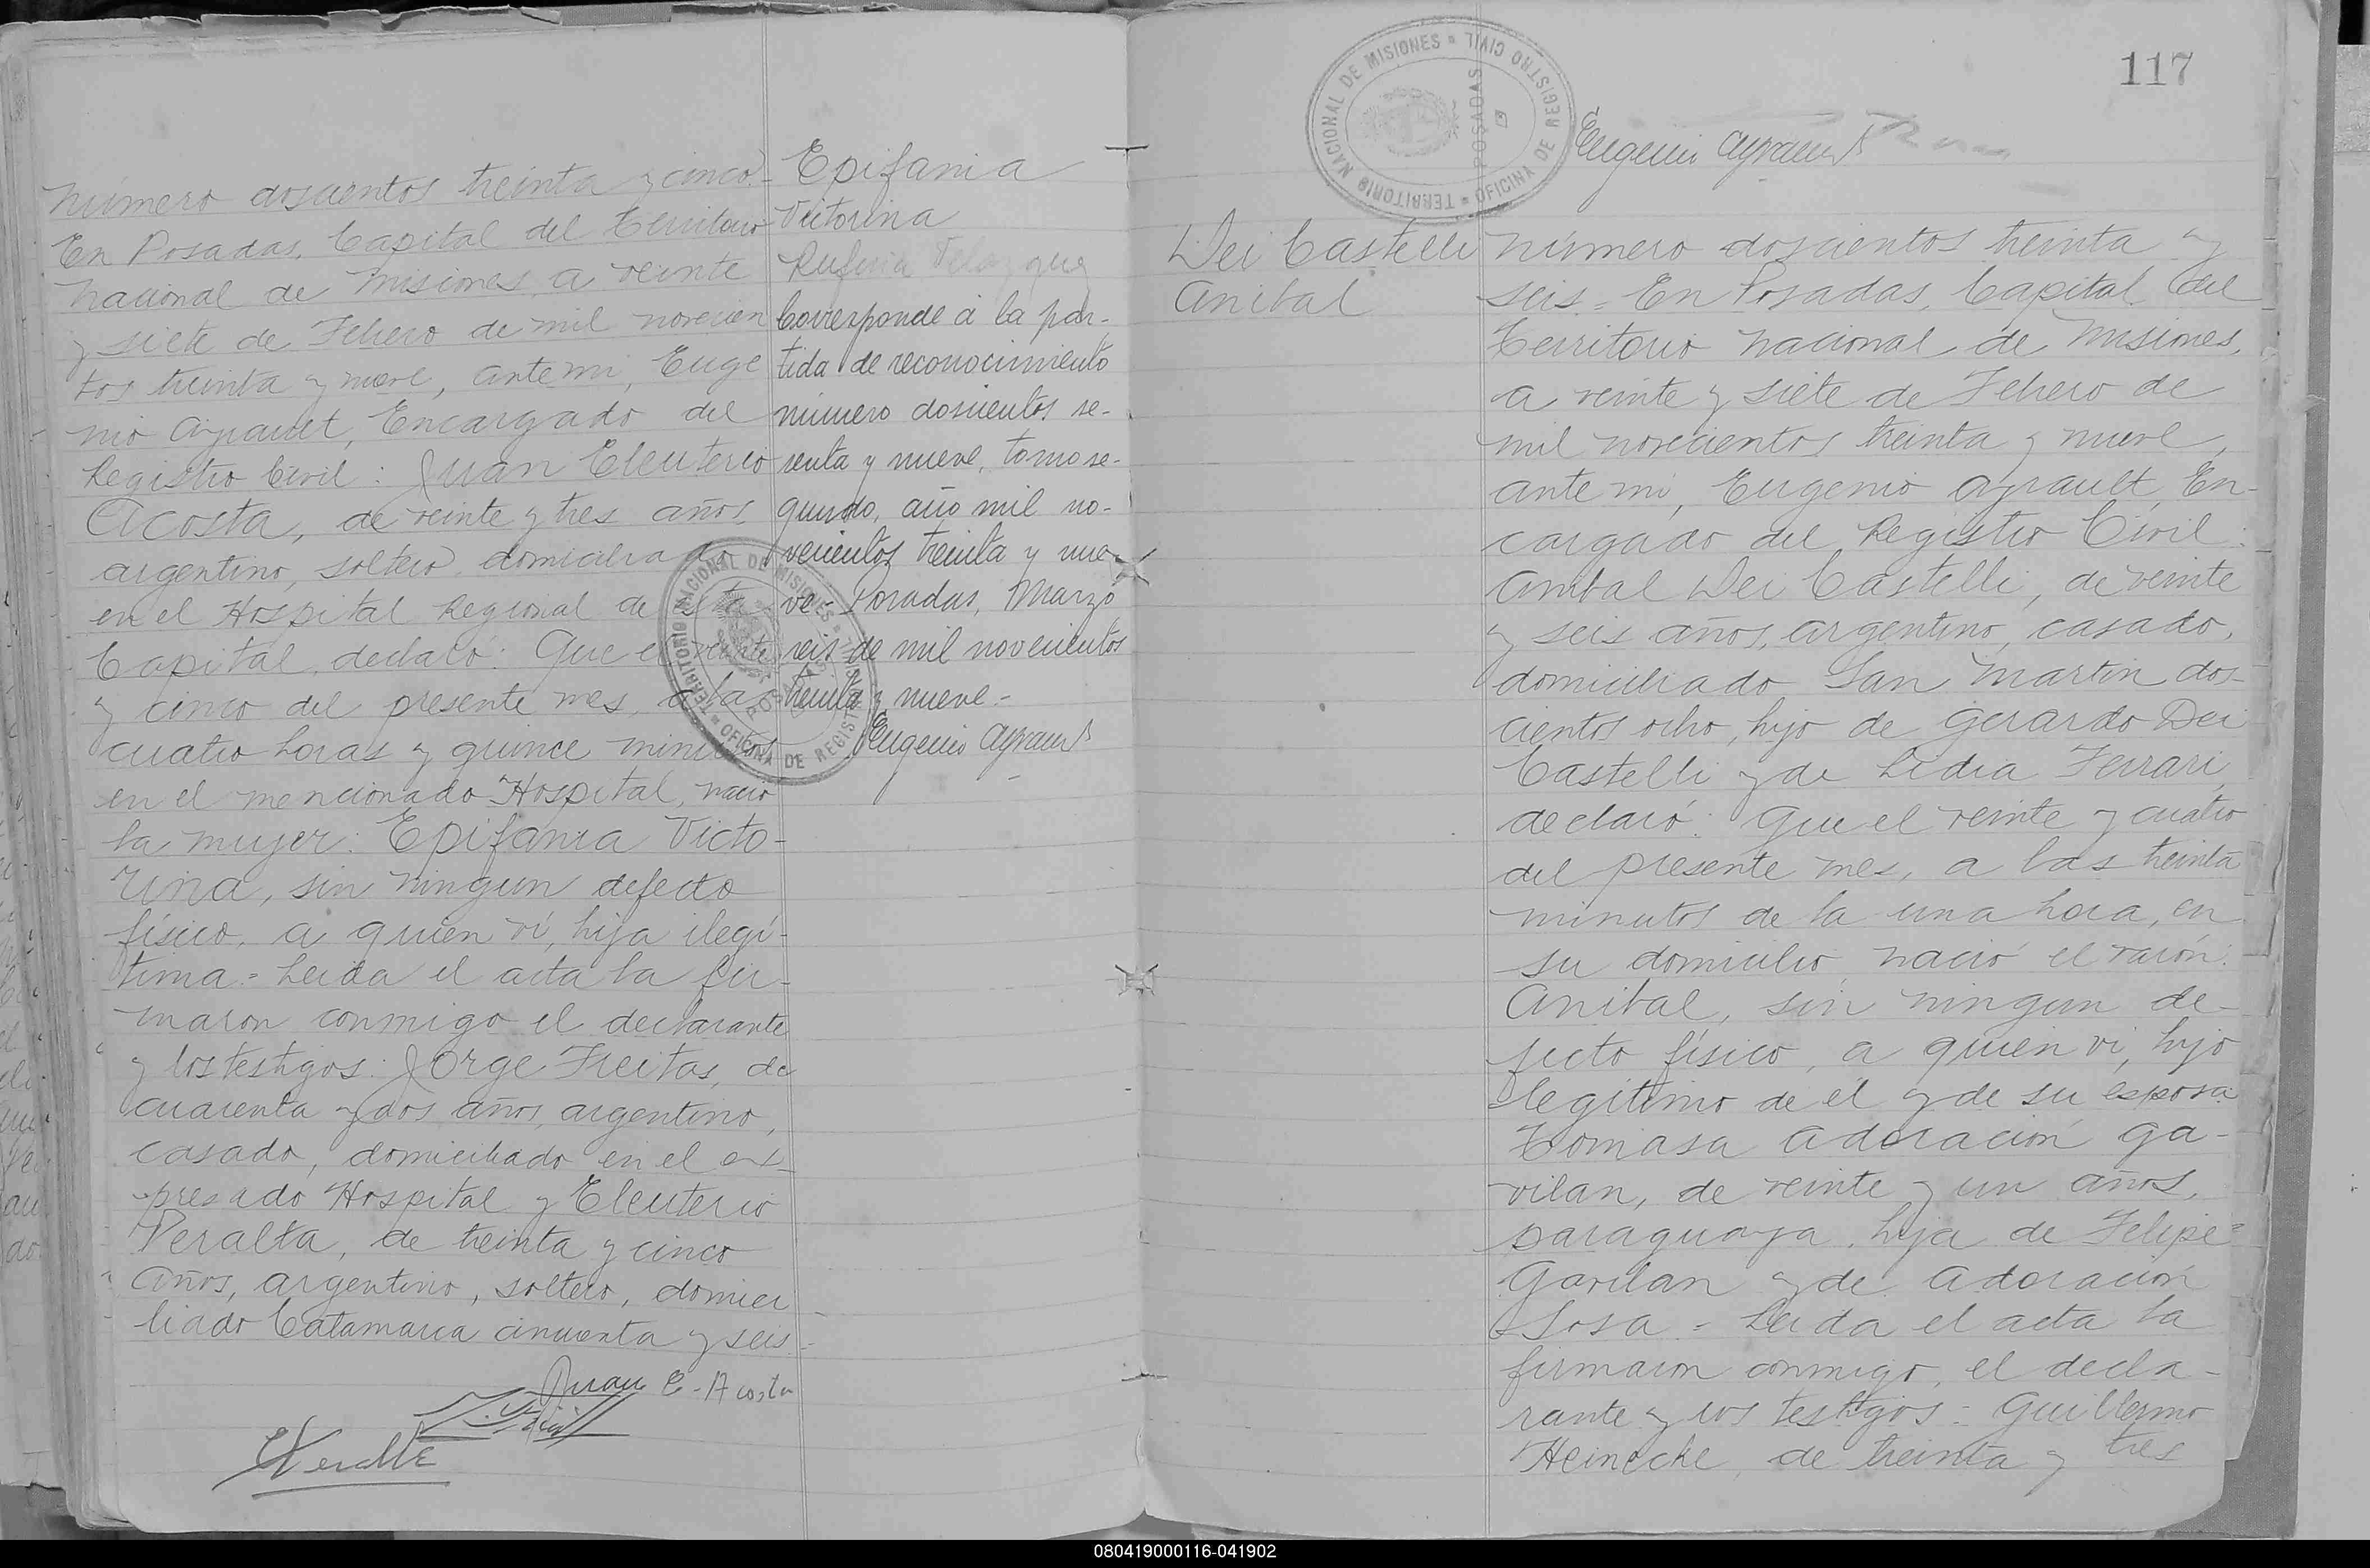 Número doscientos treinta y cinco.-
En Posadas, Capital del Territorio
Nacional de Misiones, a veinte
y siete de Febrero de mil novecien
tos treinta y nueve, ante mi, Euge
nio Ayrault, Encargado del
Registro Civil: Juan Eleuterio
Acosta, de veinte y tres años,
argentino, soltero, domiciliado
en el Hospital Regional de esta
Capital, declaró: Que el veinte
y cinco del presente mes, a las
cuatro horas y quince minutos
en el mencionado Hospital, nació
la mujer: Epifania Victo-
rina, sin ningun defecto
físico, a quien ví, hija ilegí-
tima.= Leida el acta la fir-
maron conmigo el declarante
y los testigos: Jorge Freitas, de
cuarenta y dos años, argentino,
casado, domiciliado en el ex-
presado Hospital y Eleuterio
Peralta, de treinta y cinco
años, argentino, soltero, domici-
liado Catamarca cincuenta y seis.-
Juan E. Acosta
EPeralta
Epifania
Victorina
Rufina Velazquez
Corresponde á la par-
tida de reconocimiento
número doscientos se-
senta y nueve, tomo se-
gundo, año mil no-
vecientos treinta y nue-
ve.- Posadas, Marzo
seis de mil novecientos
treinta y nueve.-
Eugenio Ayrault
TERRITORIO NACIONAL DE MISIONES = OFICINA DE REGISTRO CIVIL =
POSADAS
117
TERRITORIO NACIONAL DE MISIONES = OFICINA DE REGISTRO CIVIL =
POSADAS
Eugenio Ayrault
Dei Castelli
Anibal
Número doscientos treinta y
seis.= En Posadas, Capital del
Territorio Nacional de Misiones,
a veinte y siete de Febrero de
mil novecientos treinta y nueve,
ante mi, Eugenio Ayrault, En-
cargado del Registro Civil:
Anibal Dei Castelli, de veinte
y seis años, argentino, casado,
domiciliado San Martin dos-
cientos ocho, hijo de Gerardo Dei
Castelli y de Lidia Ferrari,
declaró: Que el veinte y cuatro
del presente mes, a las treinta
minutos de la una hora, en
su domicilio nació el varón:
Anibal, sin ningun de-
fecto físico, a quien vi, hijo
legítimo de él y de su esposa
Tomasa Adoración Ga-
vilan, de veinte y un años,
paraguaya, hija de Felipe
Gavilan y de Adoración
Sosa.= Leida el acta la
firmaron conmigo, el decla-
rante y los testigos: Guillermo
Heinecke, de treinta y tres
080419000116-041902